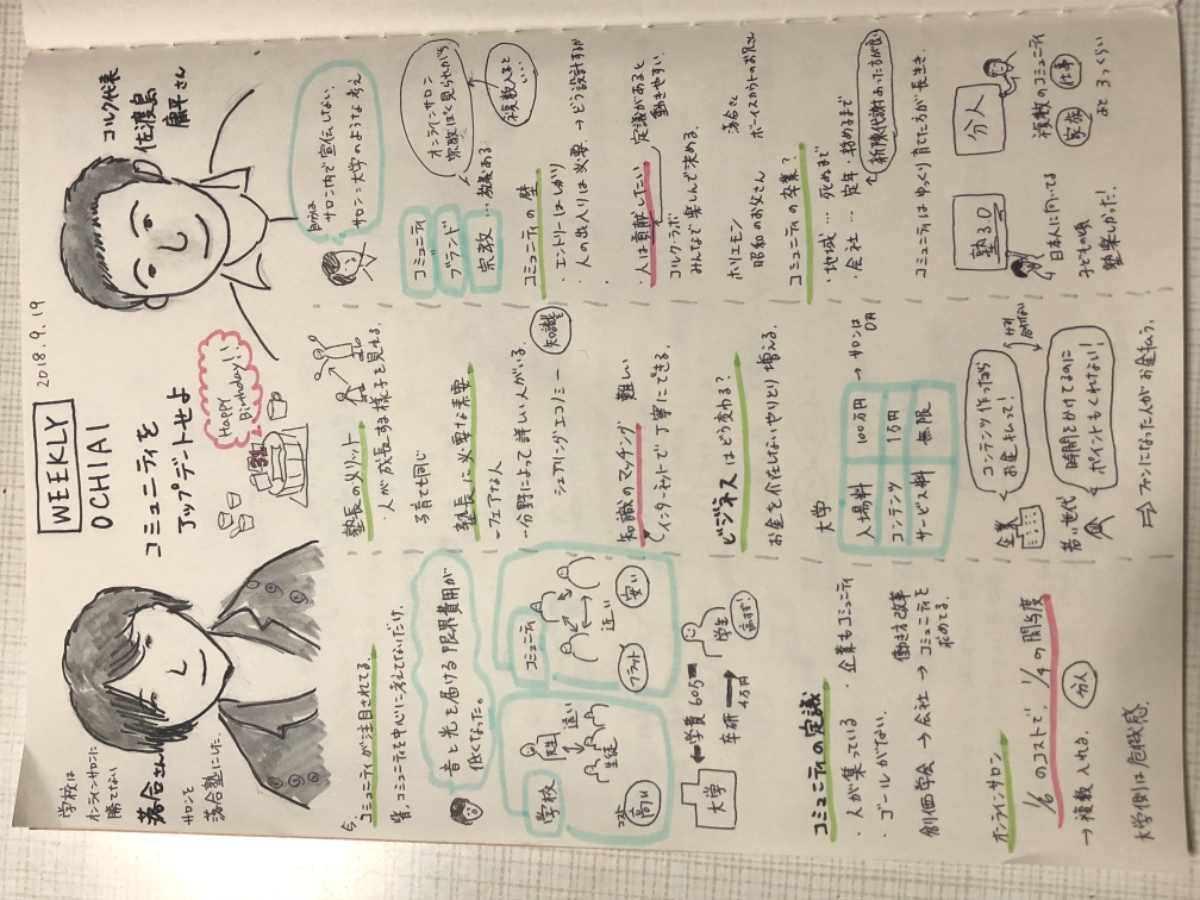 2018.9.19
WEEKLY
OCHIAI
コミュニティを
アップデートせよ
HAPPY
Birthday!!
学校は
オンラインサロンに
勝てない
落合さん
サロンを
落合塾にした。
コルク代表
佐渡島
庸平さん
今、
コミュニティが注目されてる。
皆、コミュニティを中心に考えてないだけ。
音と光を届ける限界費用が
低くなった。
学校
先生
遠い
生徒
コスト
高い
コミュニティ
近い
フラット
安い
大学
学費 605
車研
4万円
学生
高すぎ!
コミュニティの定義
・人が集っている
・企業もコミュニティ
・ゴールがない。
働き方改革
創価学会 → 会社 → コミュニティを
求めてる。
オンラインサロン
1/6のコストで、1/4の関与度
→ 複数入れる。
分人
大学側は危機感。
塾長のメリット
・人が成長する様子を見れる。
子育ても同じ
塾長に必要な素要
-フェアな人
-分野によって詳しい人がいる。
シェアリングエコノミー
知識も
知識のマッチング 難しい
インターネットで丁寧にできる。
ビジネスはどう変わる?
お金を介在しないやりとり増える。
大学
入場料 100万円 → サロンは
0円
コンテンツ 1万円
サービス料 無限
企業
コンテンツ作ったから
お金払って!
かみ
合わない
若い世代
時間をかけてるのに
ポイントもくれない!
⇒ ファンになった人がお金払う。
自分は
サロン内で宣伝しない。
サロン=大学のような考え
コミュニティ
ブランド
宗教 … 教義ある
オンラインサロン
宗教ぽく見られがち
複数入ると
いい
コミュニティの壁
・エントリーはしっかり
・人の出入りは必要 → どう設計するか
・人は貢献したい
定義があると
動きやすい
コルクラボ
みんなで楽しんで決める。
ホリエモン
昭和のお父さん
落合さん
ボーイスカウトのお兄さん
コミュニティの卒業?
・地域 … 死ぬまで
・会社 … 定年・勤めるまで
↑新陳代謝あった方が良い
コミュニティはゆっくり育てた方が長生き
塾3.0
日本人に向いてる
子どもの頃
塾楽しかった!
分人
複数のコミュニティ
家族
仕事
あと3つくらい